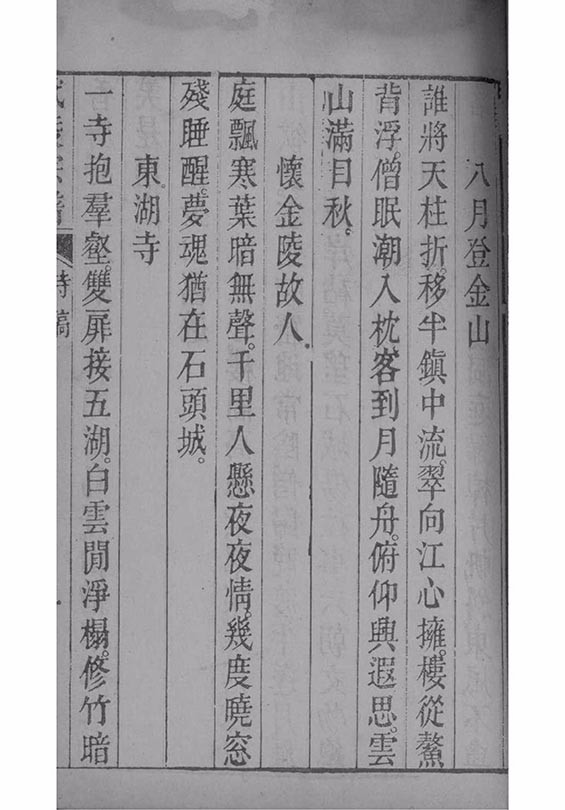 八月登金山
誰將天柱折。移半鎮中流。翠向江心擁。樓從鰲
背浮。僧眠潮入枕。客到月隨舟。俯仰興遐思。雲
山滿目秋。
懷金陵故人
庭飄寒葉暗無聲。千里人懸夜夜情。幾度曉窓
殘睡醒。夢魂猶在石頭城。
東湖寺
一寺抱羣壑。雙扉接五湖。白雲閒淨榻。修竹暗
詩稿